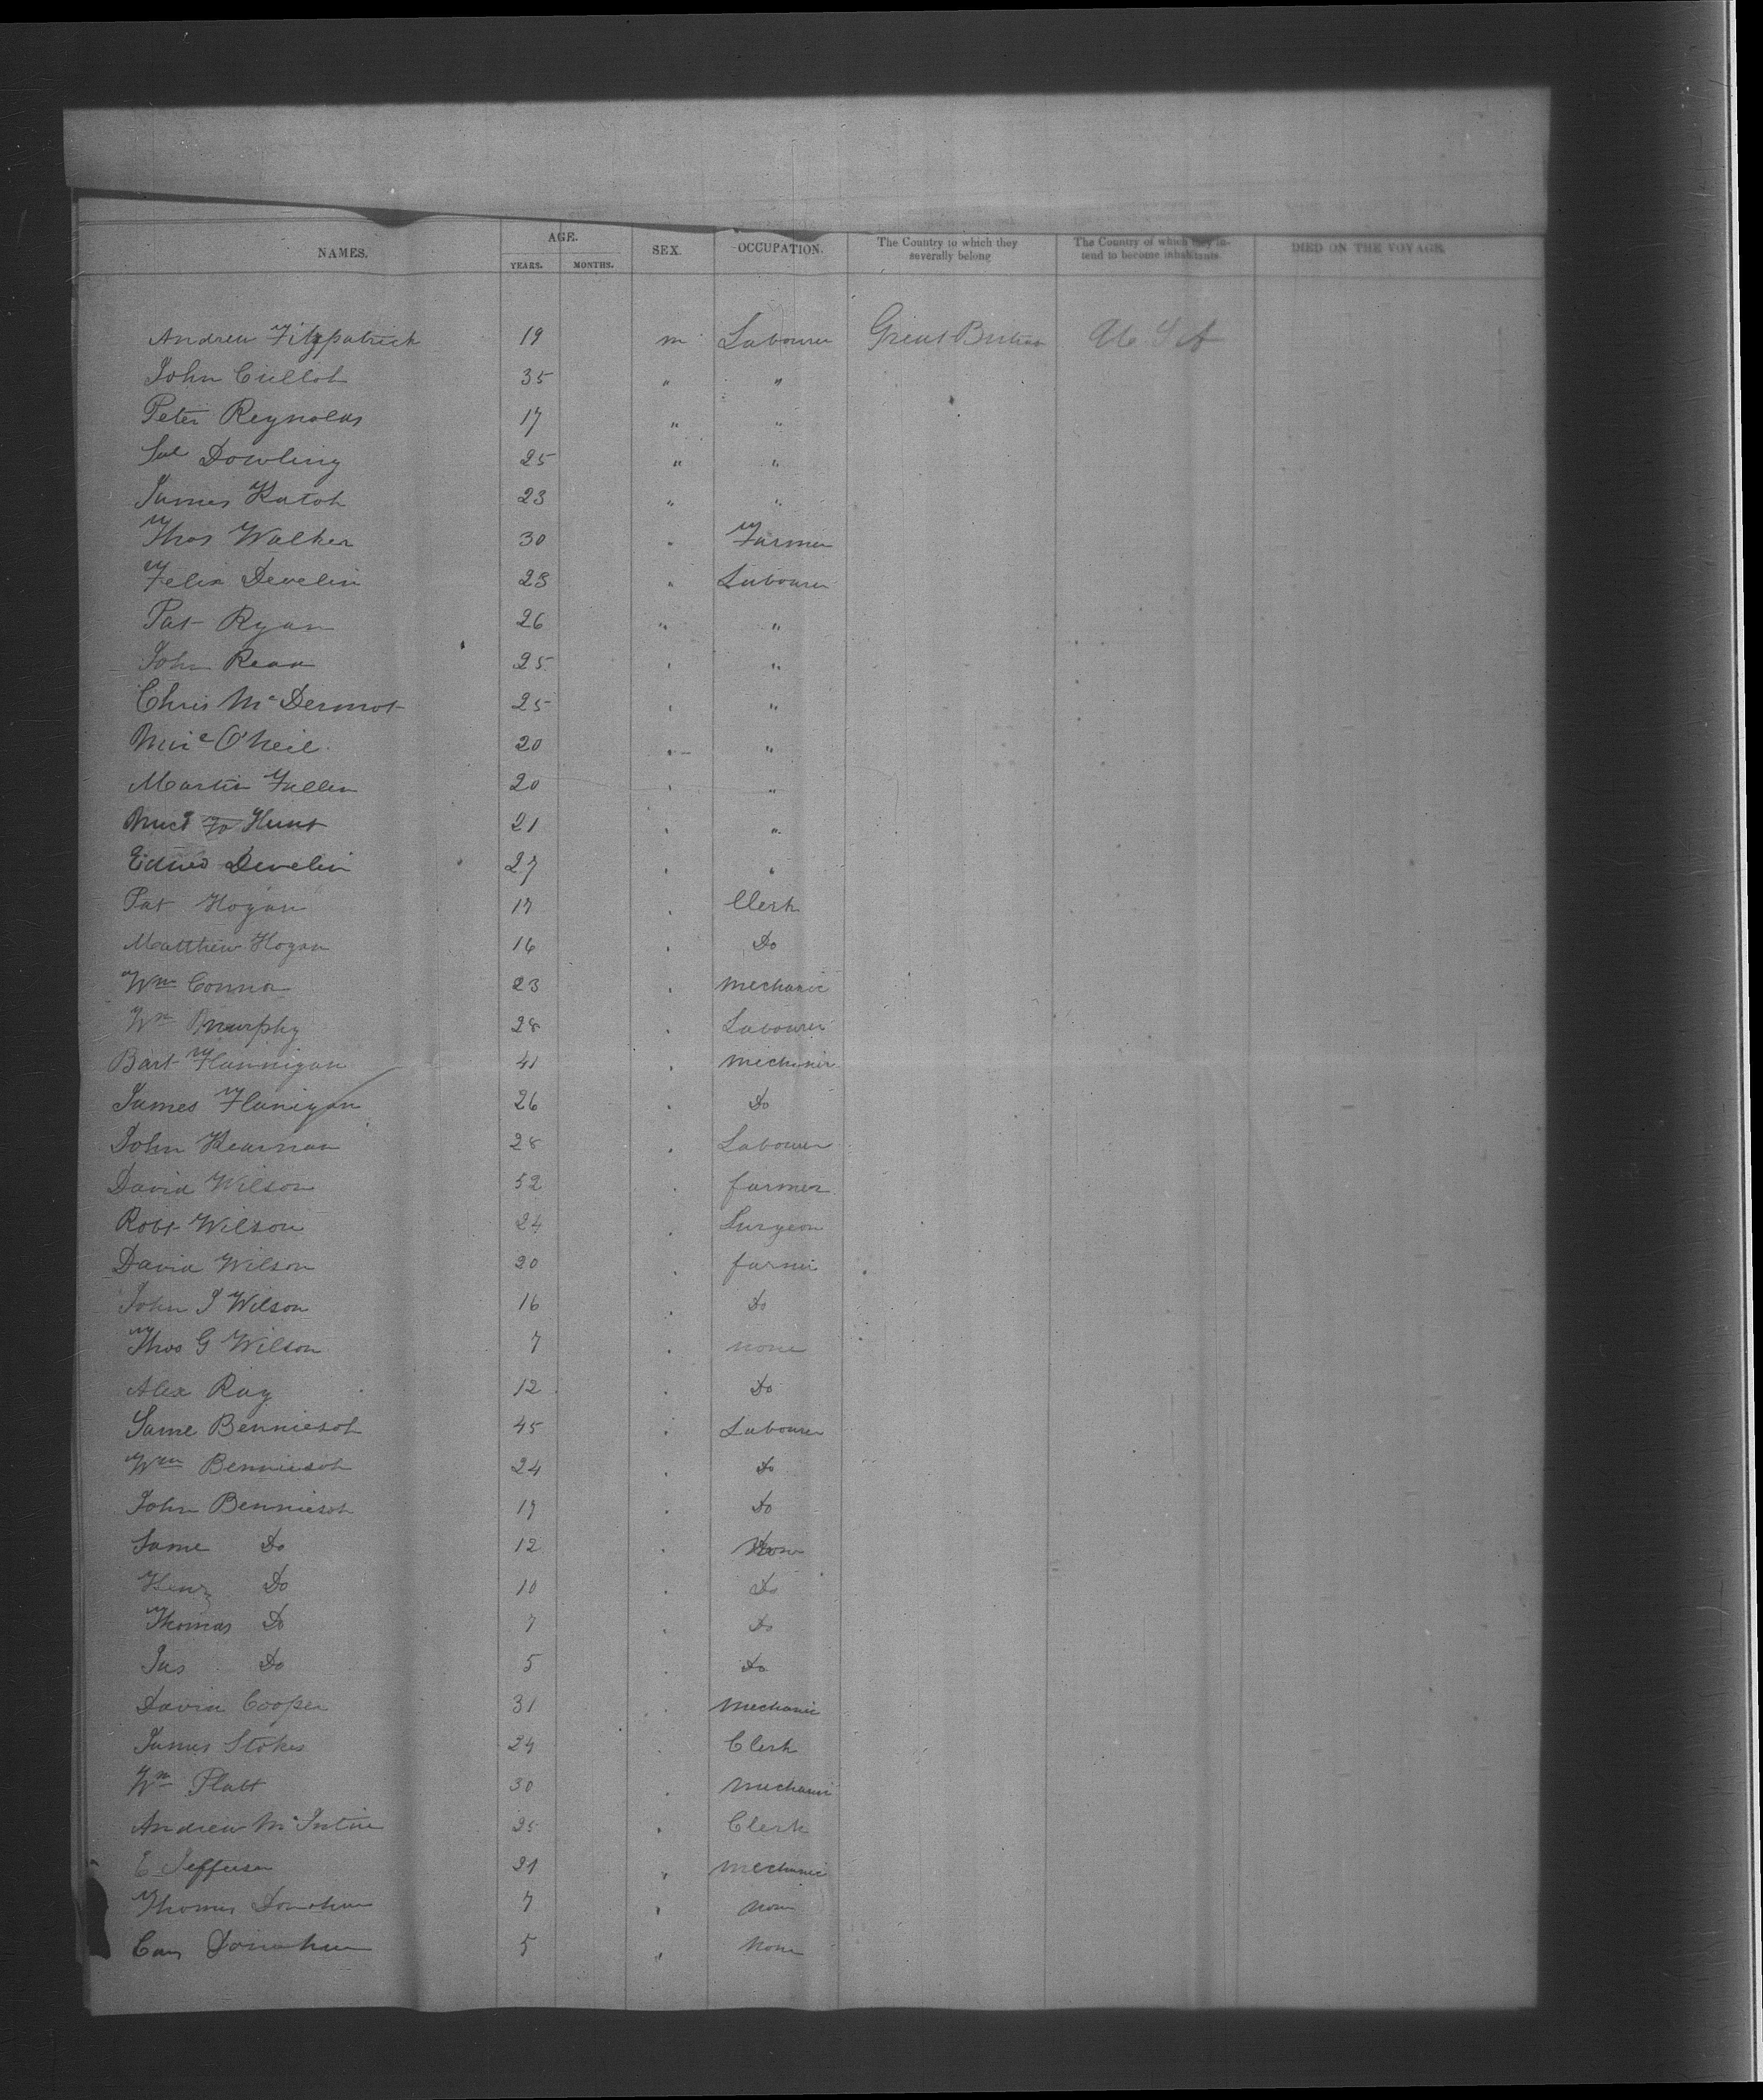 NAMES. AGE. YEARS. MONTHS. SEX. OCCUPATION. The Country to which they severally belong The Country of which they intend to become inhabitants. DIED ON THE VOYAGE.
Andrew Fitzpatrick 19 m Labourer Great Britain U S A
John Cullot 35 " "
Peter Reynolds 17 " "
Dowling 25 " "
James 23 " "
Thos Walker 30 " Farmer
Felix Develin 23 " Labourer
Pat Ryan 26 " "
John 25 " "
Chris McDermot 25 " "
O'Neil 20 " "
Martin Fullen 20 " "
Hunt 21 " "
Develin 27 " "
Pat Hogan 17 " Clerk
Matthew Hogan 16 " Do
Wm Connor 23 " Mechanic
Wm Murphy 28 " Labourer
Bart Flannigan 41 " Mechanic
James Flanigan 26 " Do
John Kearnan 28 " Labourer
David Wilson 52 " farmer
Robt Wilson 24 " Surgeon
David Wilson 20 " farmer
John J Wilson 16 " Do
Thos G Wilson 7 " none
Alex Ray 12 " Do
Same Benniesot 45 " Labourer
Wm Benniesot 24 " Do
John Benniesot 17 " Do
Same Do 12 " None
Henry Do 10 " Do
Thomas Do 7 " Do
Jas Do 5 " Do
David Cooper 31 " Mechanic
James Stokes 24 " Clerk
Wm Platt 30 " Mechanic
Andrew McIntire 25 " Clerk
E Jefferson 21 " Mechanic
Thomas Donohue 7 " None
Donohue 5 " None